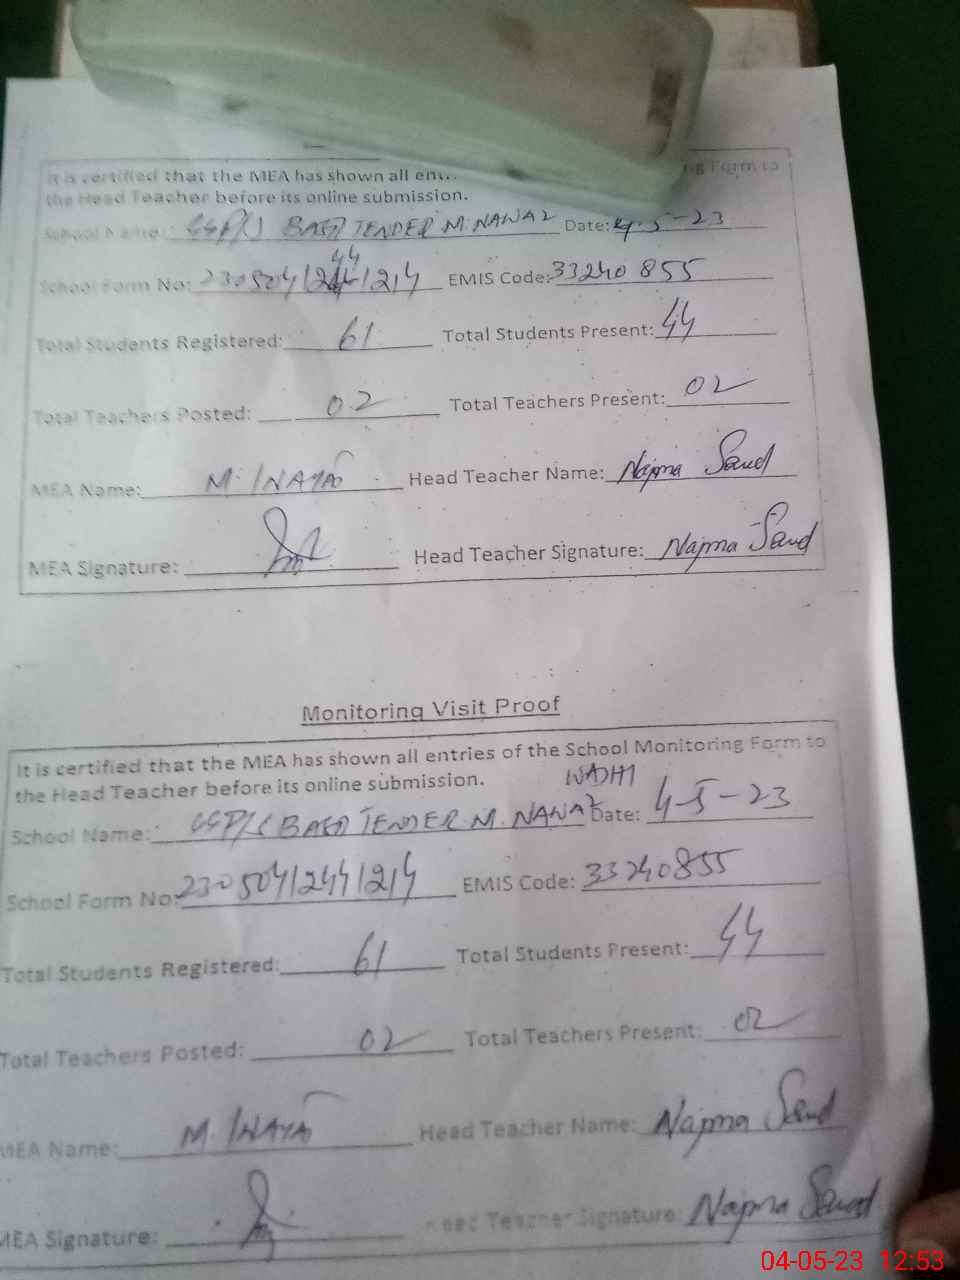 It is certified that the MEA has shown all ent.. ng Form to
the Head Teacher before its online submission.
School Name: TENDER M. NAWAZ Date: 4-5-23
44
School Form No: EMIS Code: 33240855
Total Students Registered: 61 Total Students Present: 44
Total Teachers Posted: 02 Total Teachers Present: 02
MEA Name: M. INAYAT Head Teacher Name: Najma Saud
MEA Signature: Head Teacher Signature: Najma Saud
Monitoring Visit Proof
It is certified that the MEA has shown all entries of the School Monitoring Form to
the Head Teacher before its online submission.
School Name: TENDER M. NAWAZ Date: 4-5-23
School Form No: EMIS Code: 33240855
Total Students Registered: 61 Total Students Present: 44
Total Teachers Posted: 02 Total Teachers Present: 02
MEA Name: M. INAYAT Head Teacher Name: Najma Saud
MEA Signature: Head Teacher Signature: Najma Saud
04-05-23 12:53